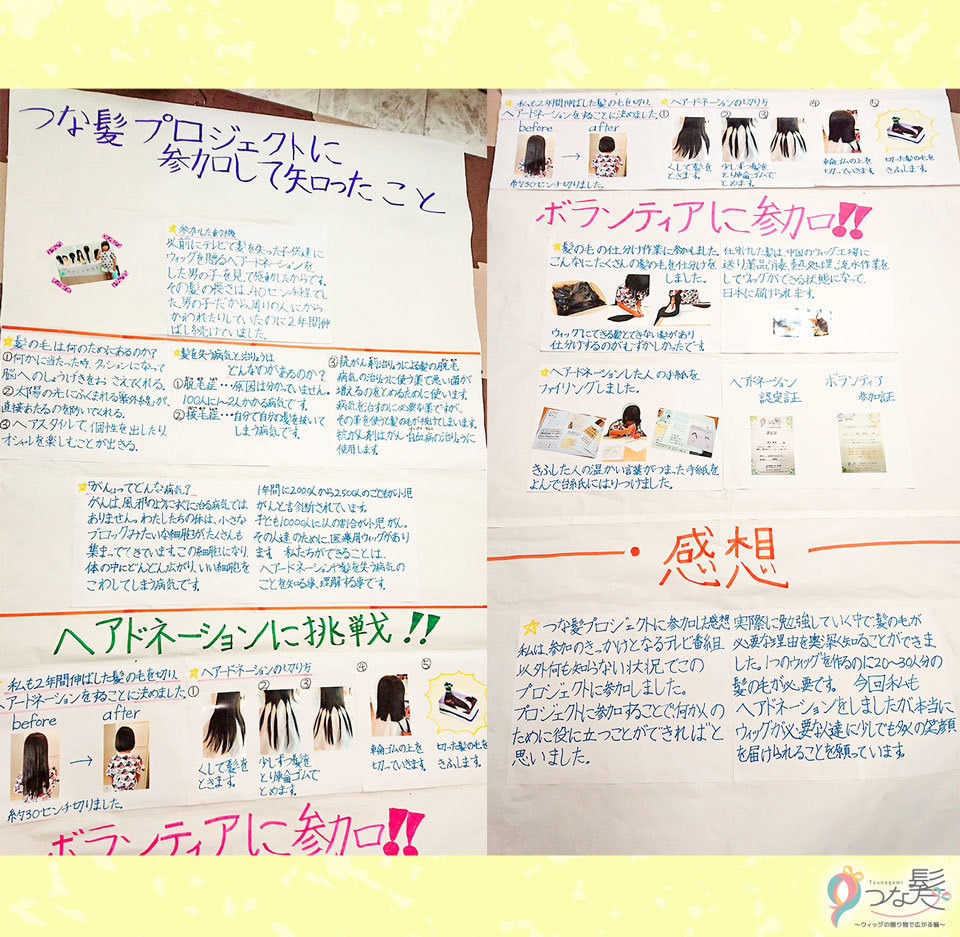 つな髪プロジェクトに
参加して知ったこと
☆参加した動機
以前にテレビで髪を失った子供達に
ウィッグを贈るヘアードネーションを
した男の子を見て感動したからです。
その髪の長さは、40センチ程でし
た。男の子だから、周りの人にから
かわれたりしていたのに2年間伸
ばし続けていました。
☆髪の毛は何のためにあるのか?
①何かに当たった時、クッションになって
脳へのしょうげきをおさえてくれる。
②太陽の光にふくまれる紫外線が、
直接あたるのを防いでくれる。
③ヘアスタイルで、個性を出したり、
オシャレを楽しむことが出きる。
☆髪を失う病気と治りょうは
どんなのがあるのか?
①脱毛症…原因は分かっていません。
100人に1〜2人かかる病気です。
②抜毛症…自分で自分の髪を抜いて
しまう病気です。
③抗がん剤治りょうによる髪の脱毛
病気の治りょうに使う薬で悪い菌が
増えるのをとめるために使います。
病気を治すのに必要な薬ですが、
その薬を使うと髪の毛が抜けてしまいます。
抗がん剤はがん・白血病の治りょうに
使用します。
☆「がん」ってどんな病気?
がんは、風邪のようにすぐに治る病気では
ありません。わたしたちの体は、小さな
ブロックみたいな細胞がたくさんも
集まってできています。この細胞になり、
体の中にどんどん広がり、いい細胞を
こわしてしまう病気です。
1年間に2000人から2500人のこどもが小児
がんと言診断されています。
子ども10000人に1人の割合が小児がん。
その人達のために、医療用ウィッグがあり
ます 私たちができることは、
ヘアードネーションや髪を失う病気の
ことを知る事、理解する事です。
ヘアドネーションに挑戦!!
私も2年間伸ばした髪の毛を切り、
ヘアードネーションをすることに決めました。
before
after
→
約30センチ切りました。
☆ヘアードネーションの切り方
①
②
③
④
⑤
くしで髪を
ときます。
少しずつ髪を
とり輪ゴムで
とめます。
輪ゴムの上を
切っていきます。
切った髪の毛を
きふします。
ボランティアに参加!!
☆私も2年間伸ばした髪の毛を切り、
ヘアードネーションをすることに決めました。
before
after
→
約30センチ切りました。
☆ヘアードネーションの切り方
①
②
③
④
⑤
くしで髪を
ときます。
少しずつ髪を
とり輪ゴムで
とめます。
輪ゴムの上を
切っていきます。
切った髪の毛を
きふします。
ボランティアに参加!!
☆髪の毛の仕分け作業に参加しました。
こんなにたくさんの髪の毛を仕分けを
しました。
ウィッグにできる髪とできない髪があり
仕分けするのがむずかしかったです
仕分けした髪は、中国のウィッグ工場に
送り薬品消毒、熱処理、流水作業を
してウィッグができる状態になって、
日本に届けられます。
☆ヘアドネーションした人の手紙を
ファイリングしました。
きふした人の温かい言葉がつまった手紙を
よんで、台紙氏にはりつけました。
ヘアドネーション
認定証
ボランティア
参加証
感想
☆つな髪プロジェクトに参加した感想
私は、参加のきっかけとなるテレビ番組
以外何も知らない状況でこの
プロジェクトに参加しました。
プロジェクトに参加することで何か人の
ために役に立つことができればと
思いました。
実際に勉強していく中で髪の毛が
必要な理由を奥深く知ることができま
した。1つのウィッグを作るのに20〜30人分の
髪の毛が必要です。 今回私も
ヘアドネーションをしましたが、本当に
ウィッグが必要な人達に少しでも多くの笑顔
を届けられることを願っています。
Tsunagami
つな髪
〜ウィッグの贈り物で広がる輪〜